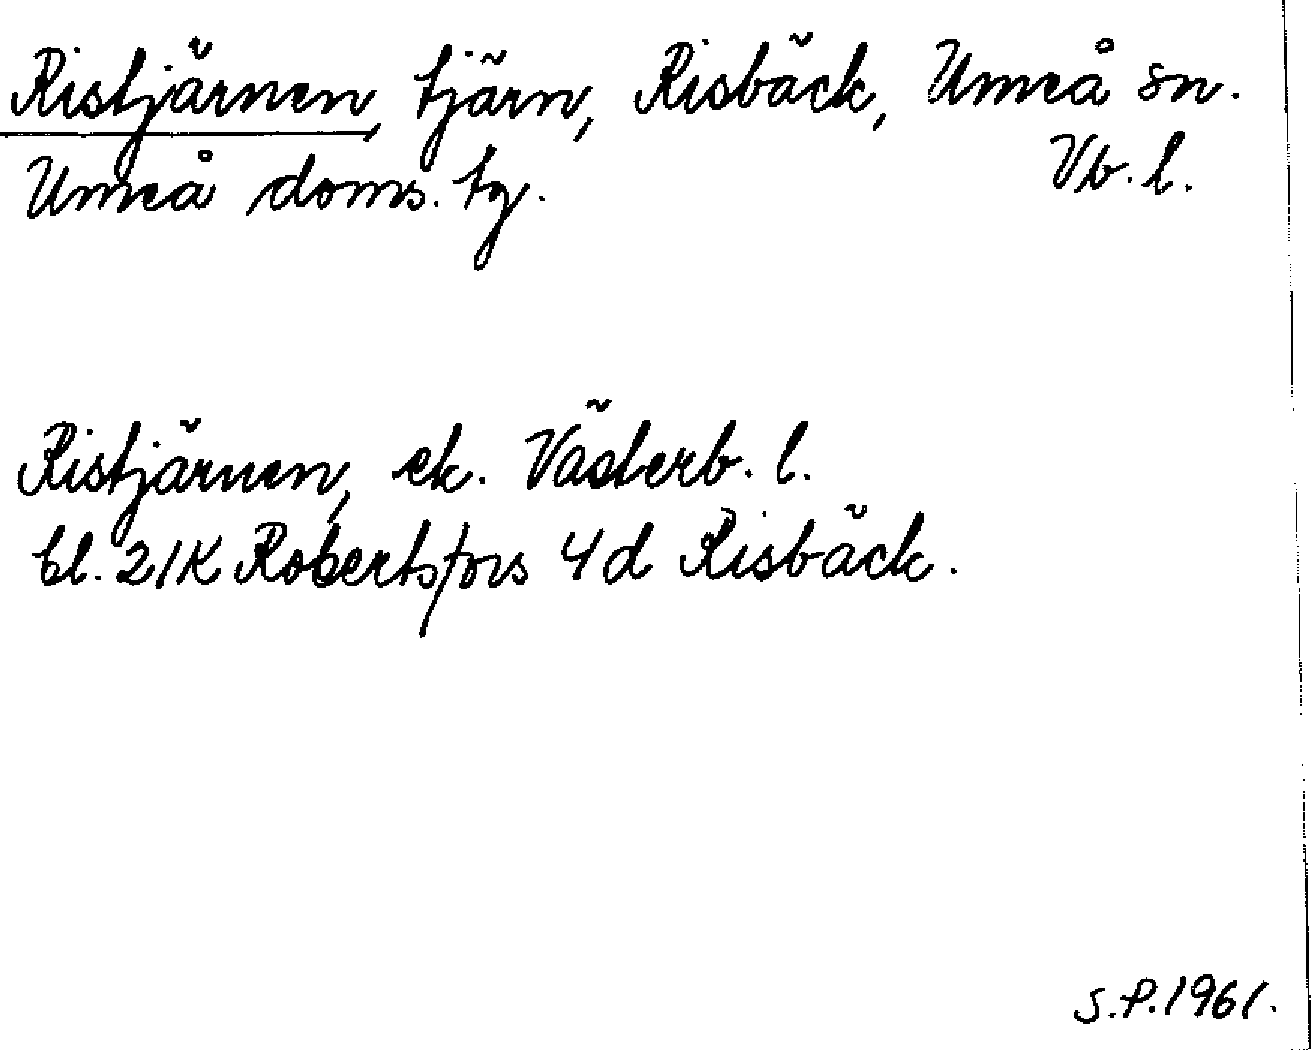 Ristjärnen, tjärn, Risbäck, Umeå sn.
Umeå doms. tg. Vb. l.
Ristjärnen, ek. Västerb. l.
bl. 21K Robertsfors 4d Risbäck.
S.P. 1961.